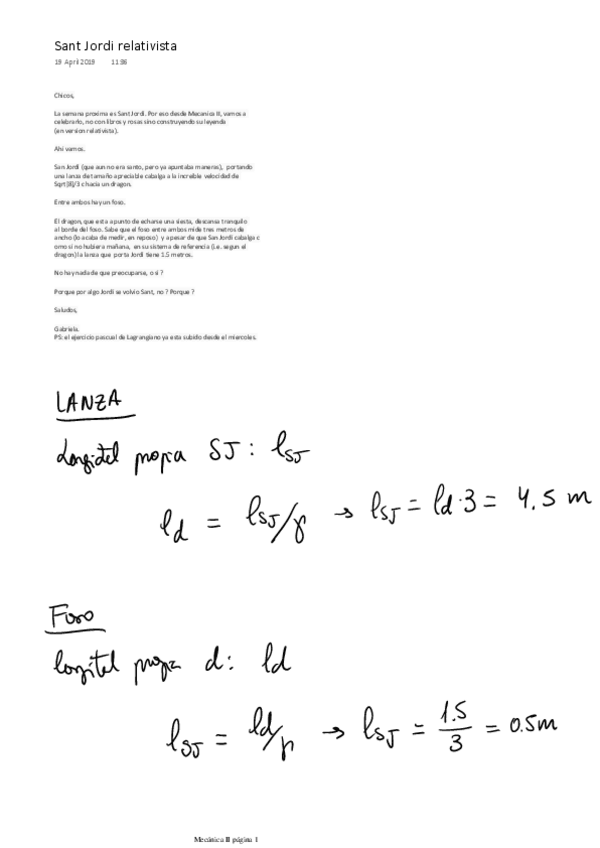 Sant Jordi relativista
19 April 2019 11:36
Chicos,
La semana proxima es Sant Jordi. Por eso desde Mecanica III, vamos a
celebrarlo, no con libros y rosas sino construyendo su leyenda
(en version relativista).
Ahi vamos.
San Jordi (que aun no era santo, pero ya apuntaba maneras), portando
una lanza de tamaño apreciable cabalga a la increible velocidad de
Sqrt[8]/3 c hacia un dragon.
Entre ambos hay un foso.
El dragon, que esta a punto de echarse una siesta, descansa tranquilo
al borde del foso. Sabe que el foso entre ambos mide tres metros de
ancho (lo acaba de medir, en reposo) y a pesar de que San Jordi cabalga c
omo si no hubiera mañana, en su sistema de referencia (i.e. segun el
dragon) la lanza que porta Jordi tiene 1.5 metros.
No hay nada de que preocuparse, o si ?
Porque por algo Jordi se volvio Sant, no ? Porque ?
Saludos,
Gabriela.
PS: el ejercicio pascual de Lagrangiano ya esta subido desde el miercoles.
LANZA
Longitud propia SJ : lSJ
ld = lSJ/γ → lSJ = ld·3 = 4.5 m
Foso
longitud propia d: ld
lSJ = ld/γ → lSJ = 1.5/3 = 0.5m
Mecánica II página 1